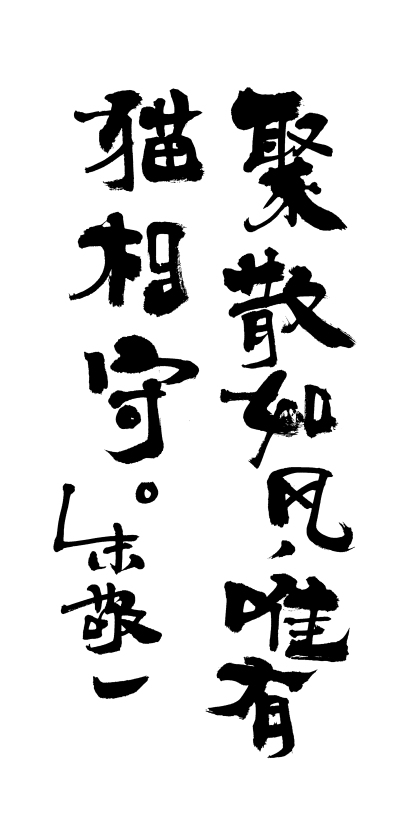 聚散如风，唯有
猫相守。
朱敬一